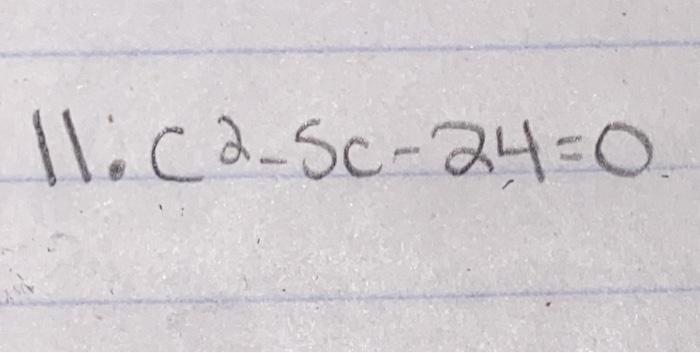 11. c²-5c-24=0